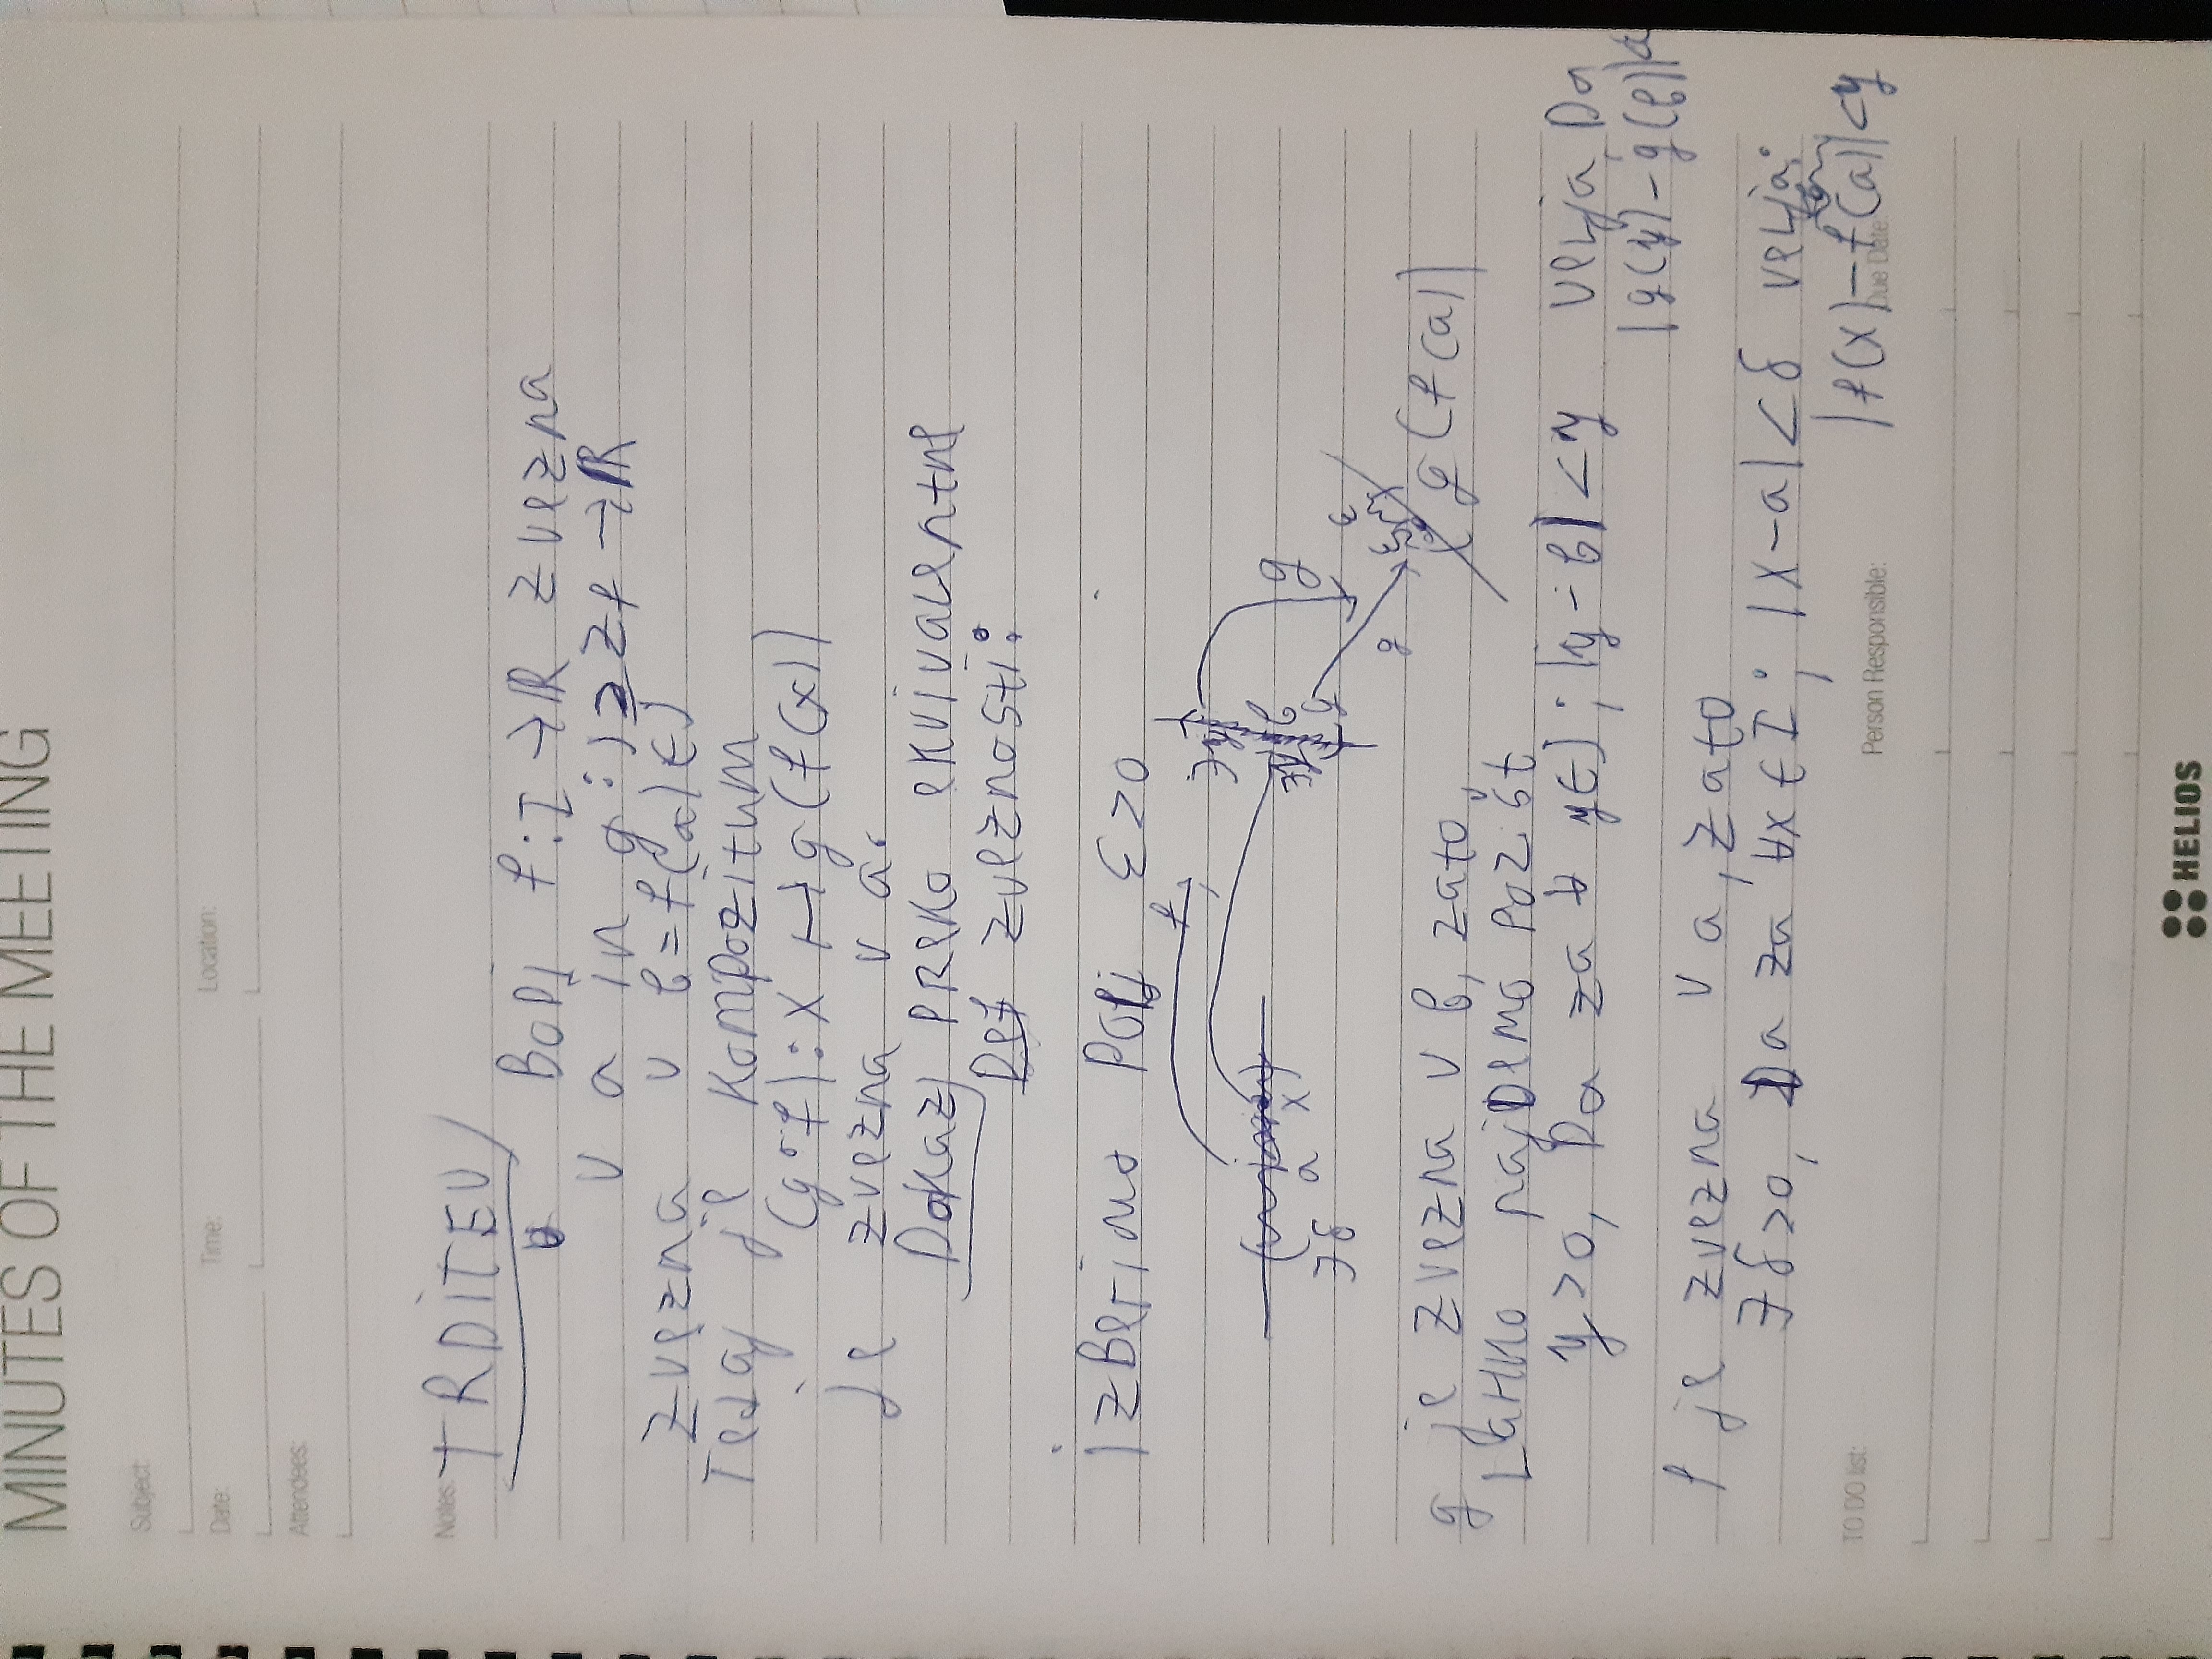 MINUTES OF THE MEETING
Subject:
Date: Time: Location:
Attendees:
Notes: TRDiTEV
Bodi f: I → ℝ zvezna
v a in g: J ⊇ Zf → ℝ
zvezna v b = f(a) ∈ J
Tedaj je kompozitum
(g∘f): x ↦ g(f(x))
je zvezna v a.
Dokaz preko ekvivalentne
Def zveznosti:
izberimo ε > 0
f
a x b
∃δ y g
g ε ε
g(f(a))
g je zvezna v b, zato
Lahko najdemo
η > 0, Da za ∀ y ∈ J; |y - b| < η velja Da
|g(y) - g(b)| < ε
f je zvezna v a, zato
∃δ > 0, Da za ∀x ∈ I; |x - a| < δ velja:
|f(x) - f(a)| < η
TO DO list: Person Responsible: Due Date:
HELIOS